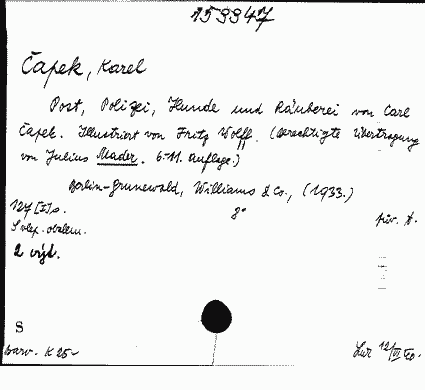 159947
Čapek, Karel
Post, Polizei, Hunde und Räuberei von Carl
Čapek. Illustriert von Fritz Wolff. (Berechtigte Übertragung
von Julius Mader. 6-11. Auflage.)
Berlin-Grunewald, Williams & Co., (1933.)
127 [I] s. 8°
S vlep. obálkou. pův. A.
2 výt.
S
barv. K 25-
12/VI 60.